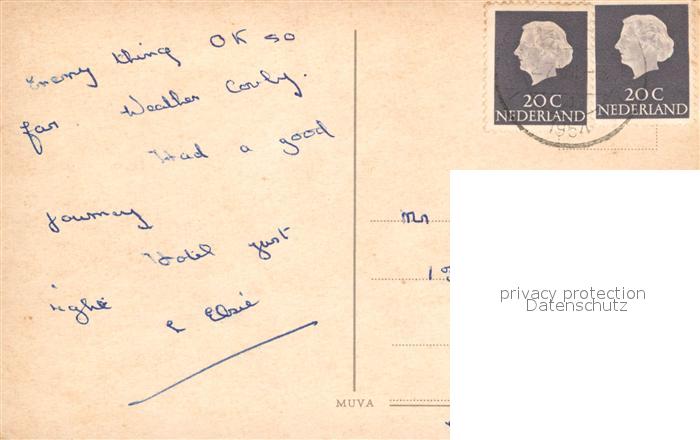 Every thing OK so
far. Weather Cooly.
Had a good
journey
Hotel just
right
E Elsie
20 C
NEDERLAND
20 C
NEDERLAND
Mr
MUVA
privacy protection
Datenschutz